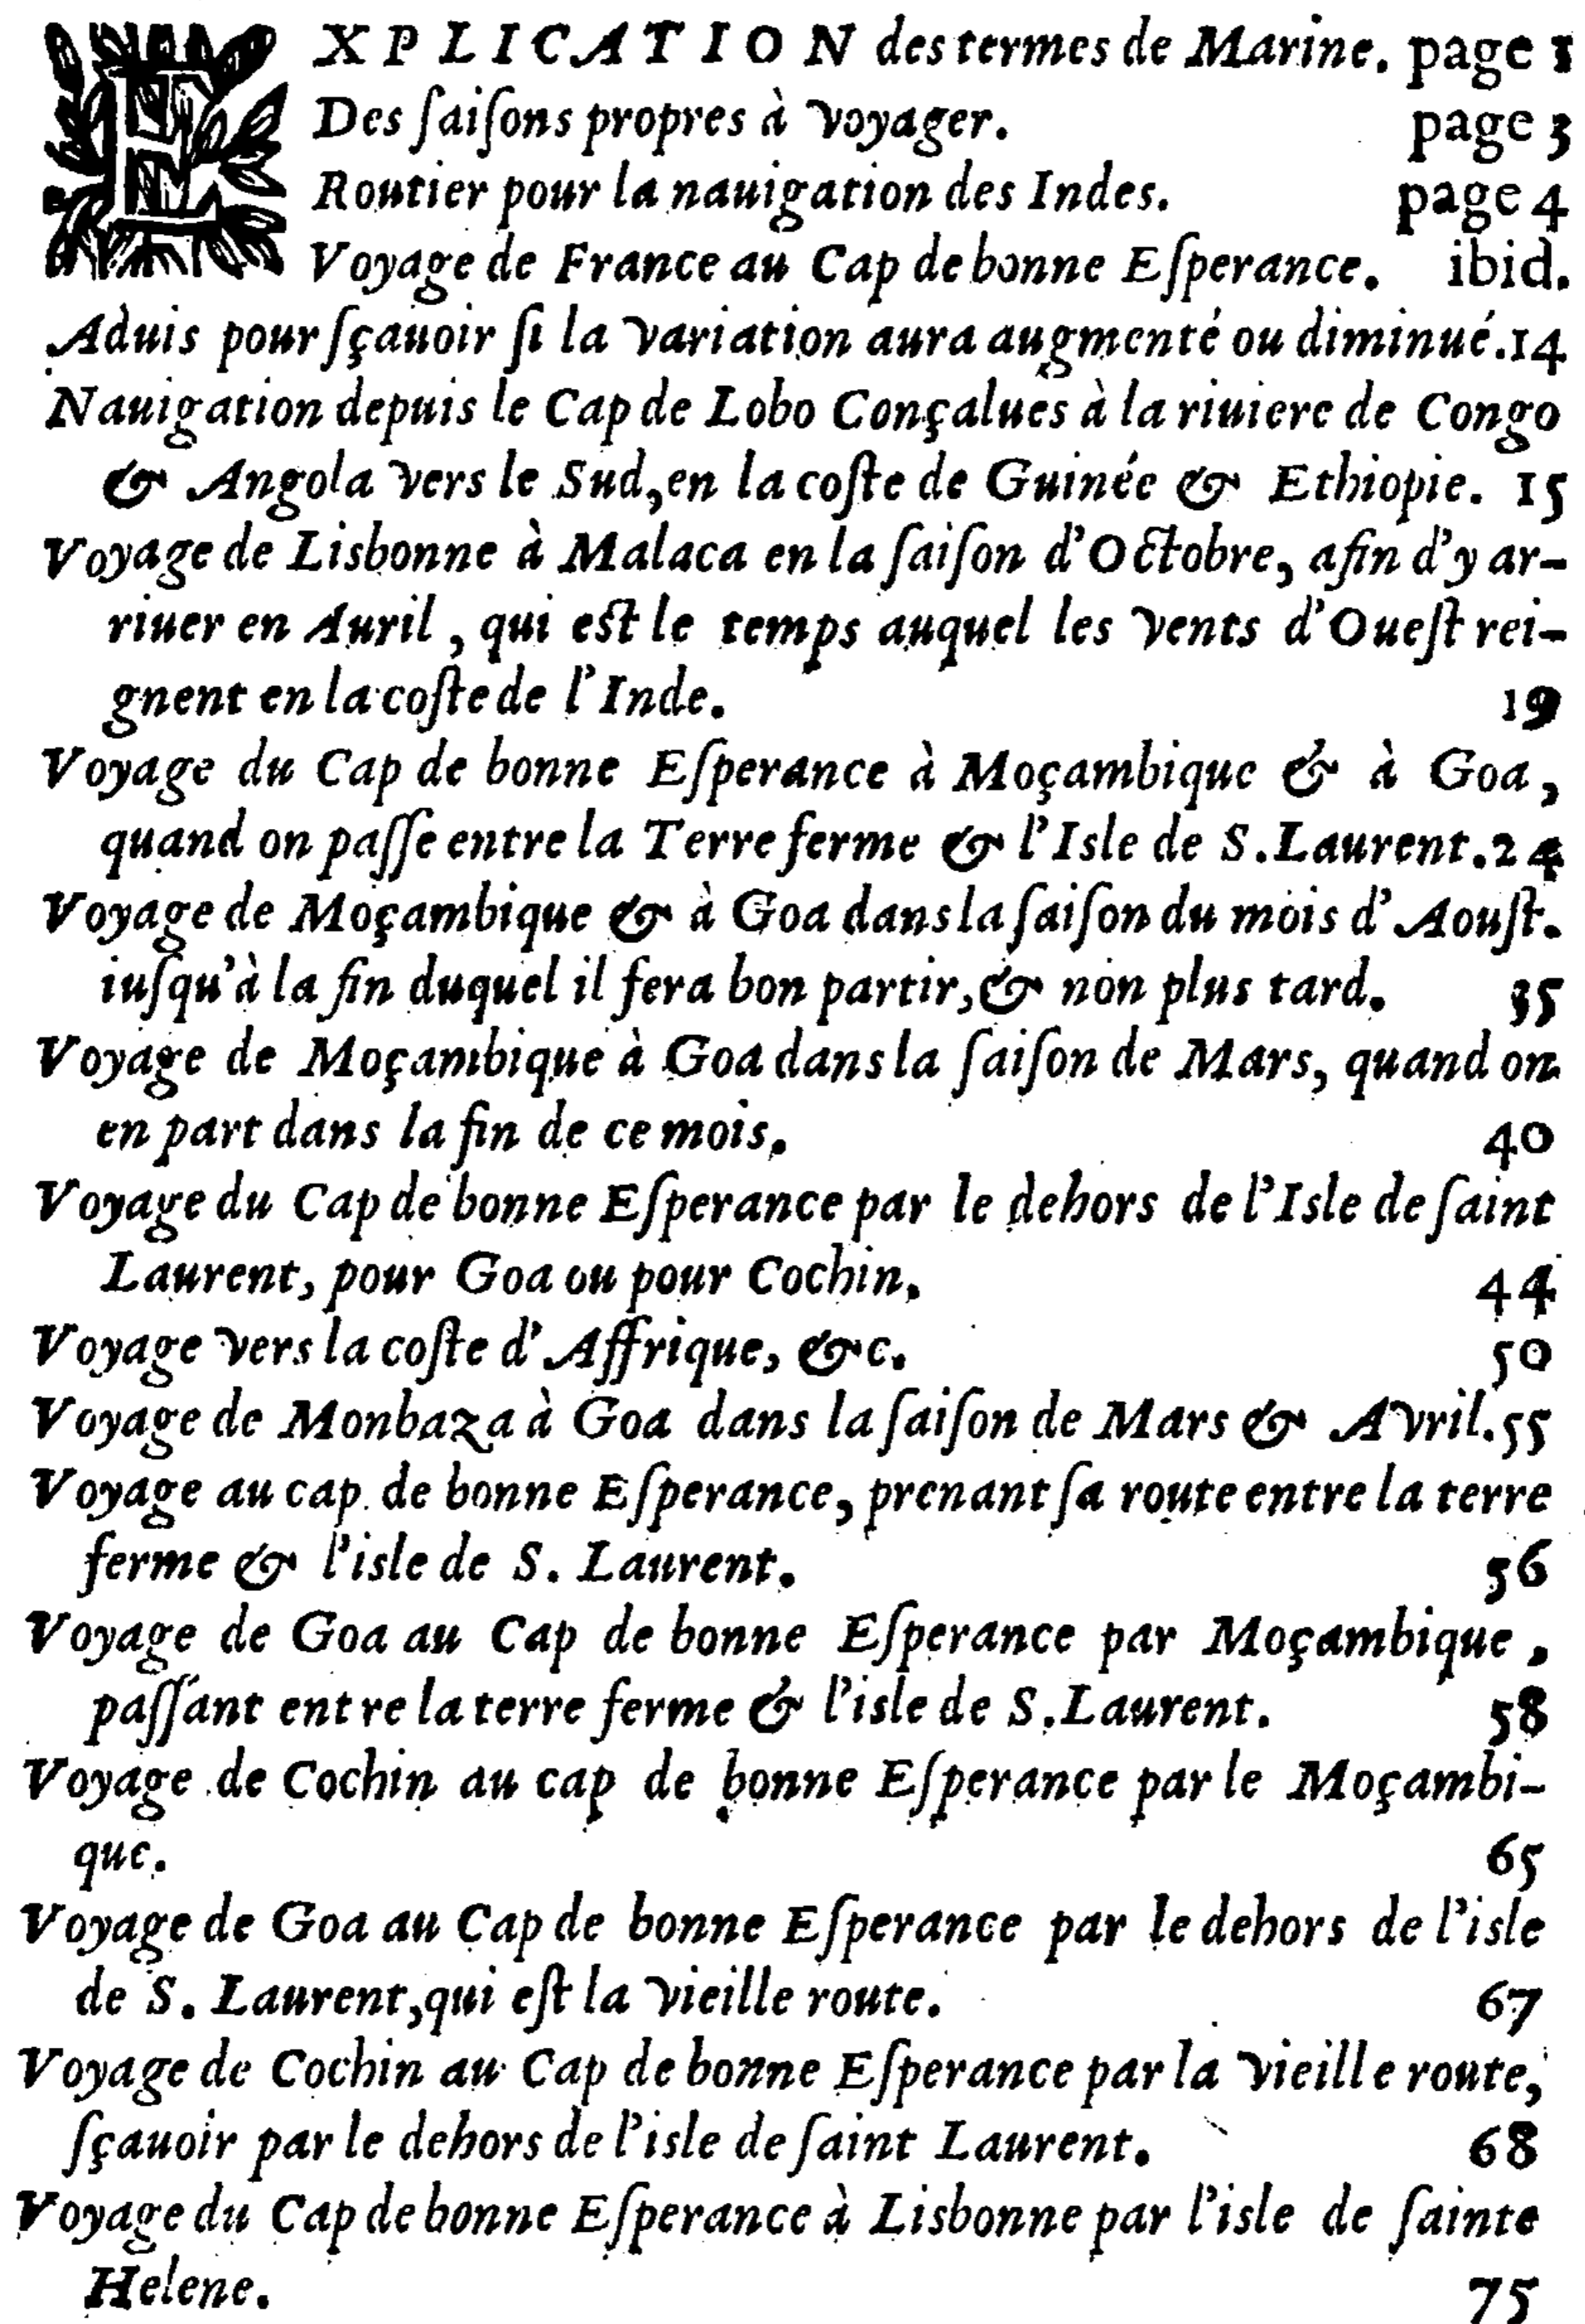 EXPLICATION des termes de Marine. page 1
Des ſaiſons propres à voyager. page 3
Routier pour la nauigation des Indes. page 4
Voyage de France au Cap de bonne Eſperance. ibid.
Aduis pour ſçauoir ſi la variation aura augmenté ou diminué. 14
Nauigation depuis le Cap de Lobo Conçalues à la riuiere de Congo
& Angola vers le Sud, en la coſte de Guinée & Ethiopie. 15
Voyage de Lisbonne à Malaca en la ſaiſon d'Octobre, afin d'y ar-
riuer en Auril, qui eſt le temps auquel les vents d'Oueſt rei-
gnent en la coſte de l'Inde. 19
Voyage du Cap de bonne Eſperance à Moçambique & à Goa,
quand on paſſe entre la Terre ferme & l'Isle de S. Laurent. 24
Voyage de Moçambique & à Goa dans la ſaiſon du mois d'Aouſt.
iuſqu'à la fin duquel il fera bon partir, & non plus tard. 35
Voyage de Moçambique à Goa dans la ſaiſon de Mars, quand on
en part dans la fin de ce mois. 40
Voyage du Cap de bonne Eſperance par le dehors de l'Isle de ſaint
Laurent, pour Goa ou pour Cochin. 44
Voyage vers la coſte d'Affrique, &c. 50
Voyage de Monbaza à Goa dans la ſaiſon de Mars & Avril. 55
Voyage au cap de bonne Eſperance, prenant ſa route entre la terre
ferme & l'isle de S. Laurent. 56
Voyage de Goa au Cap de bonne Eſperance par Moçambique,
paſſant entre la terre ferme & l'isle de S. Laurent. 58
Voyage de Cochin au cap de bonne Eſperance par le Moçambi-
que. 65
Voyage de Goa au Cap de bonne Eſperance par le dehors de l'isle
de S. Laurent, qui eſt la vieille route. 67
Voyage de Cochin au Cap de bonne Eſperance par la vieille route,
ſçauoir par le dehors de l'isle de ſaint Laurent. 68
Voyage du Cap de bonne Eſperance à Lisbonne par l'isle de ſainte
Helene. 75